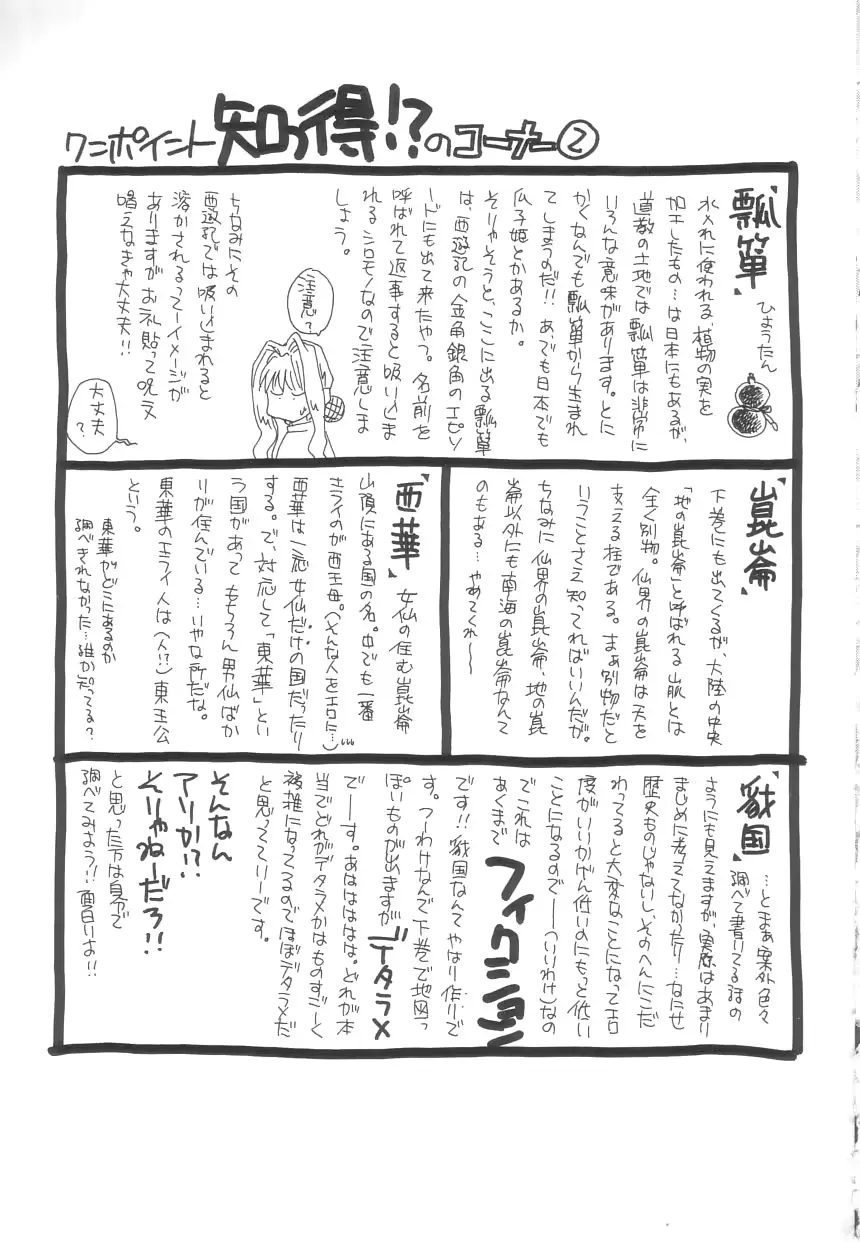 ワンポイント知っ得!?のコーナー②
『瓢箪』
ひょうたん
水入れに使われる、植物の実を
加工したもの…は日本にもあるが、
道教の土地では瓢箪は非常に
いろんな意味があります。とに
かくなんでも瓢箪から生まれ
てしまうのだ!!あ、でも日本でも
瓜子姫とかあるか。
そりゃそうと、ここに出る瓢箪
は、西遊記の金角銀角のエピソ
ードにも出て来たやつ。名前を
呼ばれて返事すると吸い込ま
れるシロモノなので注意しま
しょう。
注意?
ちなみにその
西遊記では吸い込まれると
溶かされるってーイメージが
ありますがお札貼って呪文
唱えなきゃ大丈夫!!
大丈夫?
『崑崙』
下巻にも出てくるが、大陸の中央
「地の崑崙」と呼ばれる山脈とは
全く別物。仙界の崑崙は天を
支える柱である。まぁ別物だと
いうことさえ知ってればいいんだが。
ちなみに仙界の崑崙、地の崑
崙以外にも南海の崑崙なんて
のもある…やめてくれ〜〜
『西華』
女仙の住む崑崙
山頂にある国の名。中でも一番
エライのが西王母。(そんな人をエロに…)
西華は一応女仙だけの国だったり
する。で、対応して「東華」とい
う国があってもちろん男仙ばか
りが住んでいる…いやな所だな。
東華のエライ人は(人!?)東王公
という。
東華がどこにあるのか
調べきれなかった…誰か知ってる?
『戤国』
…とまぁ案外色々
調べて書いてる話の
ようにも見えますが、実際はあまり
まじめに考えてなかったり…なにせ
歴史ものじゃないし、そのへんにこだ
わってると大変なことになってエロ
度がいいかげん低いのにもっと低い
ことになるので——(いいわけ)なの
でこれは
あくまで
フィクション
です!!戤国なんてやはり作りで
す。つーわけなんで下巻で地図っ
ぽいものが出ますがデタラメ
でーす。あはははは。どれが本
当でどれがデタラメかはものすごーく
複雑になってるのでほぼデタラメだ
と思っててりーです。
そんなん
アリか!?
そりゃねーだろ!!
と思った方は自分で
調べてみよう!!面白いよ!!